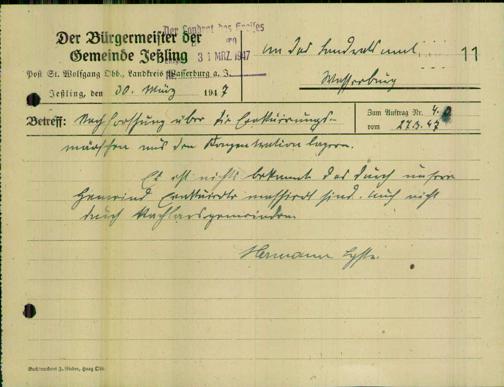 Der Bürgermeister der
Gemeinde Jeßling
Post St. Wolfgang Obb., Landkreis Wasserburg a. J.
Jeßling, den 30. März 1947
Der Landrat des Kreises
31. MRZ. 1947
An das Landratsamt
Wasserburg
11
Betreff: Nachforschung über die Evakuierungs-
märschen aus den Konzentration lagern.
Zum Auftrag Nr. 4.
vom 27.3.47
Es ist nichts bekannt das durch unsere
Gemeind Evakuierte marschiert sind. Auch nicht
durch Nachbarsgemeinden.
Hermann
Buchdruckerei J. Weber, Haag Obb.